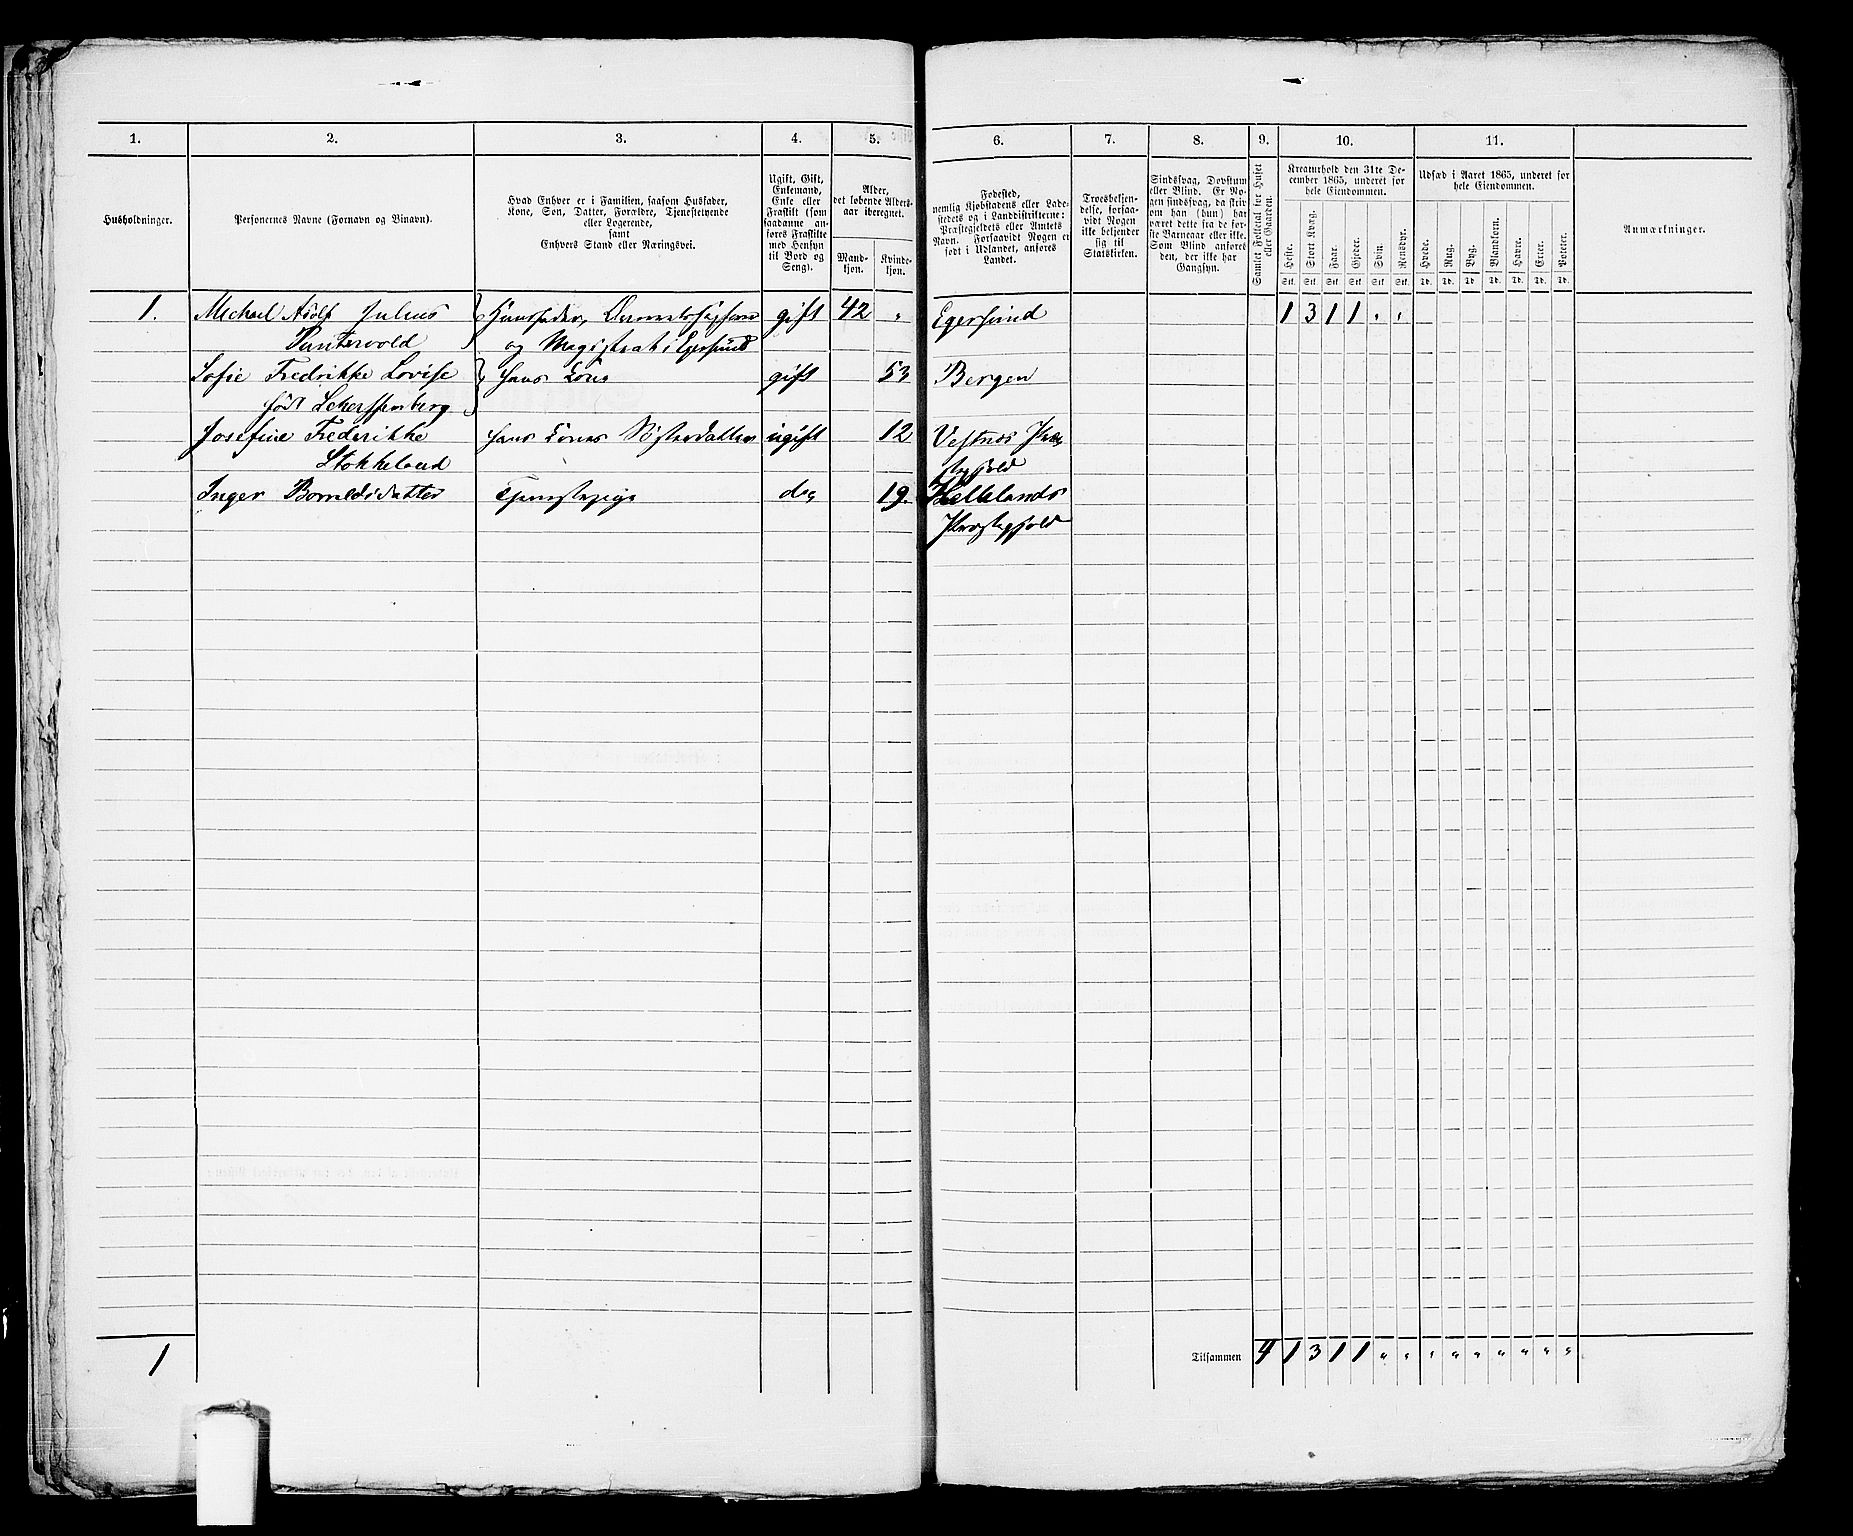 1. 2. 3. 4. 5. 6. 7. 8. 9. 10. 11.
Husholdninger.
Personernes Navne (Fornavn og Binavn).
Hvad Enhver er i Familien, saasom Husfader,
Kone, Søn, Datter, Forældre, Tjenestetyende
eller Logerende,
samt
Enhvers Stand eller Næringsvei.
Ugift, Gift,
Enkemand,
Enke eller
Fraskilt (som
saadanne an-
føres Fraskilte
med Hensyn
til Bord og
Seng).
Alder,
det løbende Alders-
aar iberegnet.
Mand-
kjøn.
Kvinde-
kjøn.
Fødested,
nemlig Kjøbstadens eller Lade-
stedets og i Landdistrikterne:
Præstegjeldets eller Amtets
Navn. Forsaavidt Nogen er
født i Udlandet, anføres
Landet.
Troesbekjen-
delse, forsaa-
vidt Nogen
ikke bekjender
sig til
Statskirken.
Sindssvag, Døvstum
eller Blind. Er No-
gen sindssvag, da skriv
om han (hun) har
været dette fra de før-
ste Barneaar eller ikke.
Som Blind anføres
den, der ikke har
Gangsyn.
Samlet Folketal for Huset
eller Gaarden.
Kreaturhold den 31te De-
cember 1865, underet for
hele Eiendommen.
Heste. Stort Kvæg. Faar. Gjeder. Svin. Rensdyr.
Stk. Stk. Stk. Stk. Stk. Stk.
Udsæd i Aaret 1865, underet for
hele Eiendommen.
Hvede. Rug. Byg. Blandkorn. Havre. Erter. Poteter.
Td. Td. Td. Td. Td. Td. Td.
Anmærkninger.
1. Michael Adolf Julius Huusfader, gift 42 " Egersund 1 3 1 1 " "
Puntervold og Magistrat i Egersund
Sofie Fredrikke Lovise hans Kone gift 53 Bergen
født
Josefine Frederikke hans Kones Søsterdatter ugift 12 Vestnes Præ-
Stokkeland stegjeld
Inger Tjenestepige do 19. Hellelands
Præstegjeld
1 Tilsammen 4 1 3 1 1 " " " " " " " " "